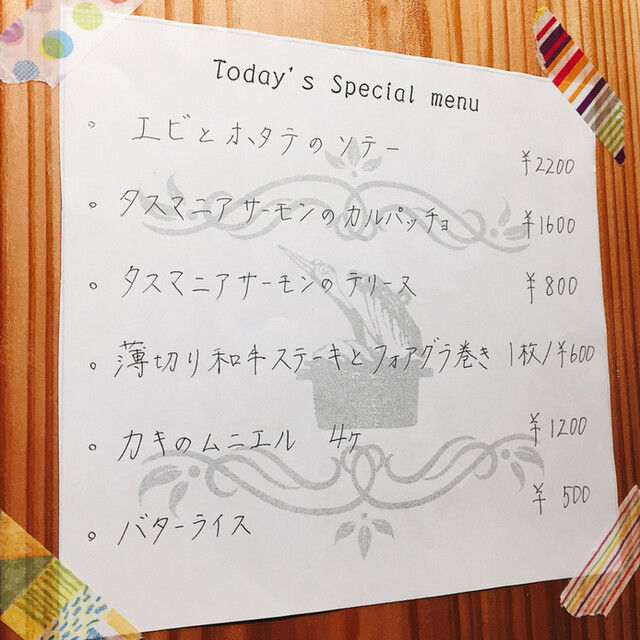 Today's Special menu
。エビとホタテのソテー ¥2200
。タスマニアサーモンのカルパッチョ ¥1600
。タスマニアサーモンのテリーヌ ¥800
。薄切り和牛ステーキとフォアグラ巻き 1枚/¥600
。カキのムニエル 4ヶ ¥1200
。バターライス ¥500